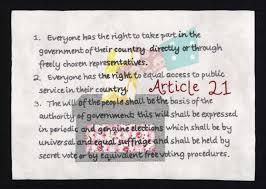 1. Everyone has the right to take part in the
government of their country directly or through
freely chosen representatives.
2. Everyone has the right to equal access to public
service in their country.
Article 21
3. The will of the people shall be the basis of the
authority of government: this will shall be expressed
in periodic and genuine elections which shall be by
universal and equal suffrage and shall be held by
secret vote or by equivalent free voting procedures.